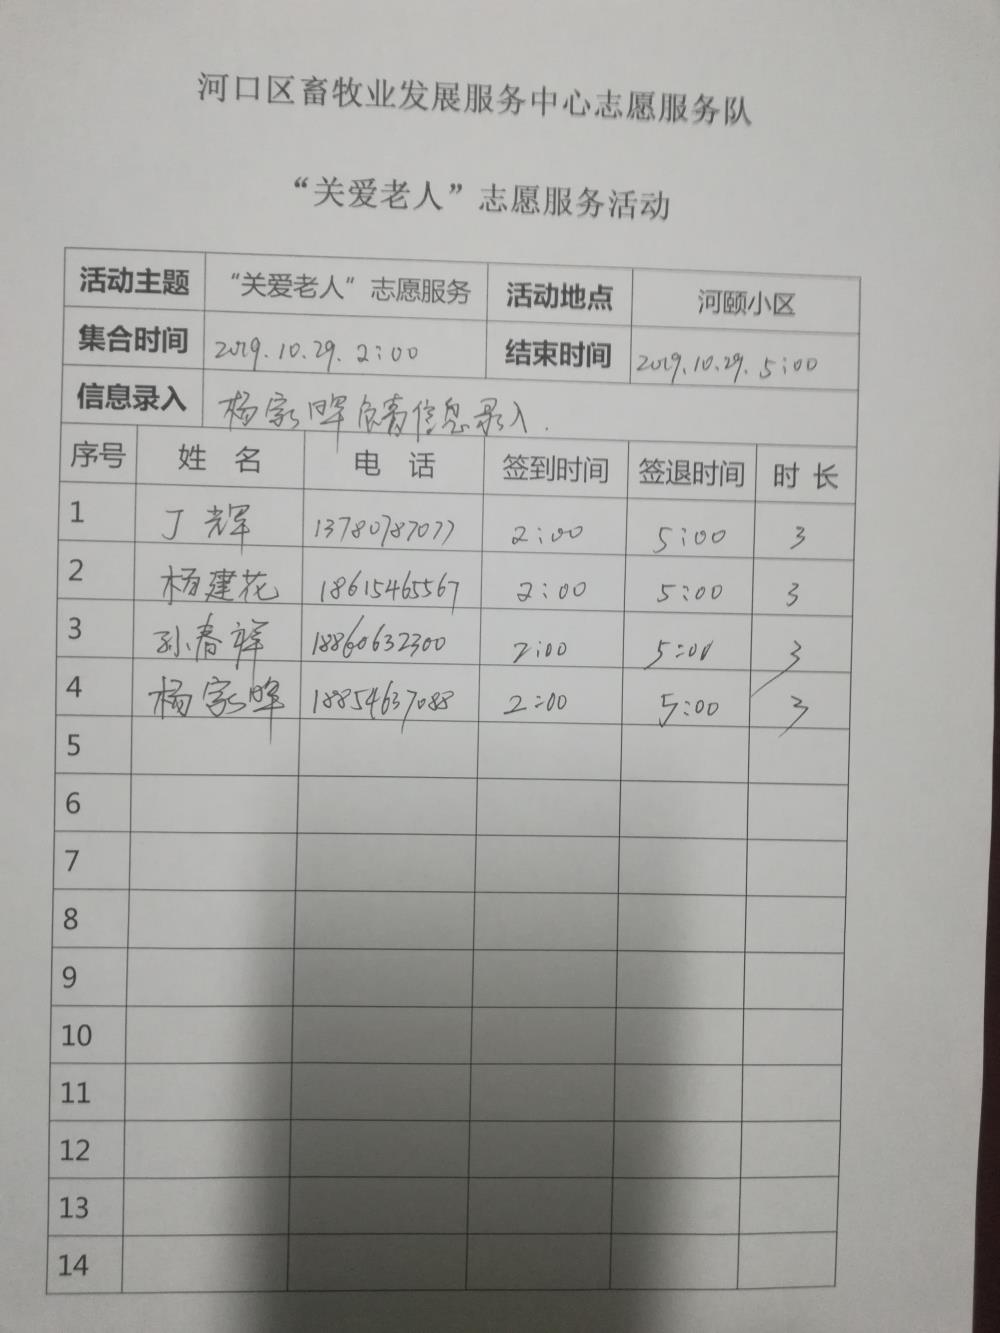 河口区畜牧业发展服务中心志愿服务队
“关爱老人”志愿服务活动
活动主题 “关爱老人”志愿服务 活动地点 河颐小区
集合时间 2019.10.29. 2:00 结束时间 2019.10.29. 5:00
信息录入 杨家晖负责信息录入.
序号 姓 名 电 话 签到时间 签退时间 时 长
1 丁辉 13780787077 2:00 5:00 3
2 杨建花 18615465567 2:00 5:00 3
3 孙春祥 18860632300 2:00 5:00 3
4 杨家晖 18854637088 2:00 5:00 3
5
6
7
8
9
10
11
12
13
14